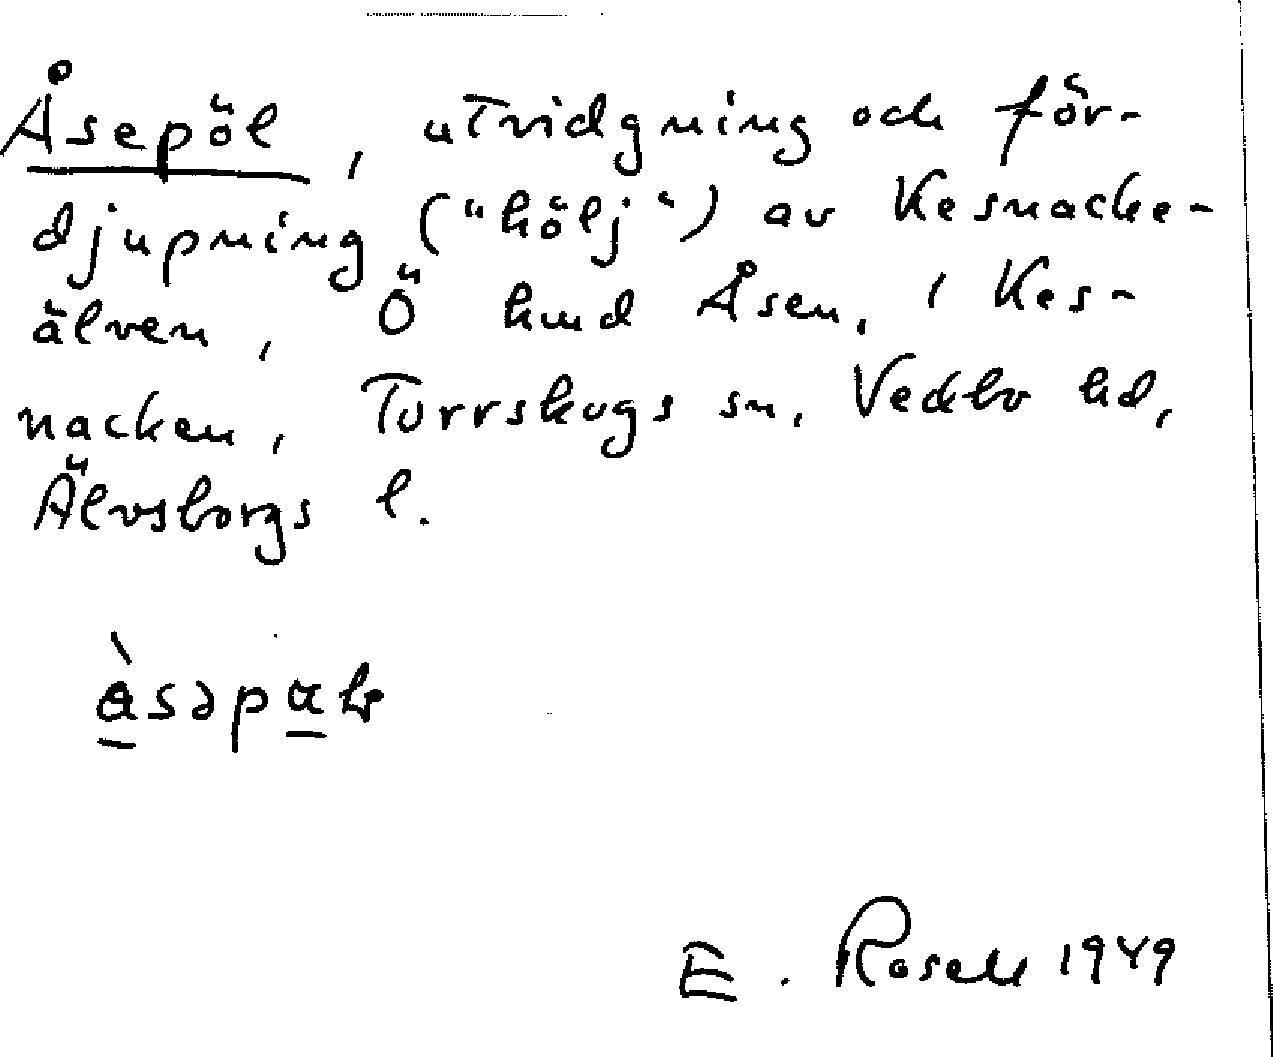 Åsepöl, utvidgning och för-
djupning ("hölj") av Kesnacke-
älven, Ö hmd Åsen, i Kes-
nacken, Torrskogs sn, Vedbo hd,
Älvsborgs l.
E. Rosell 1949